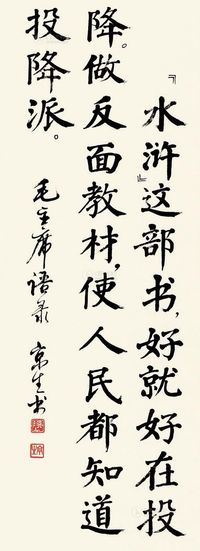 『水浒』这部书，好就好在投
降。做反面教材，使人民都知道
投降派。
毛主席语录 京生书